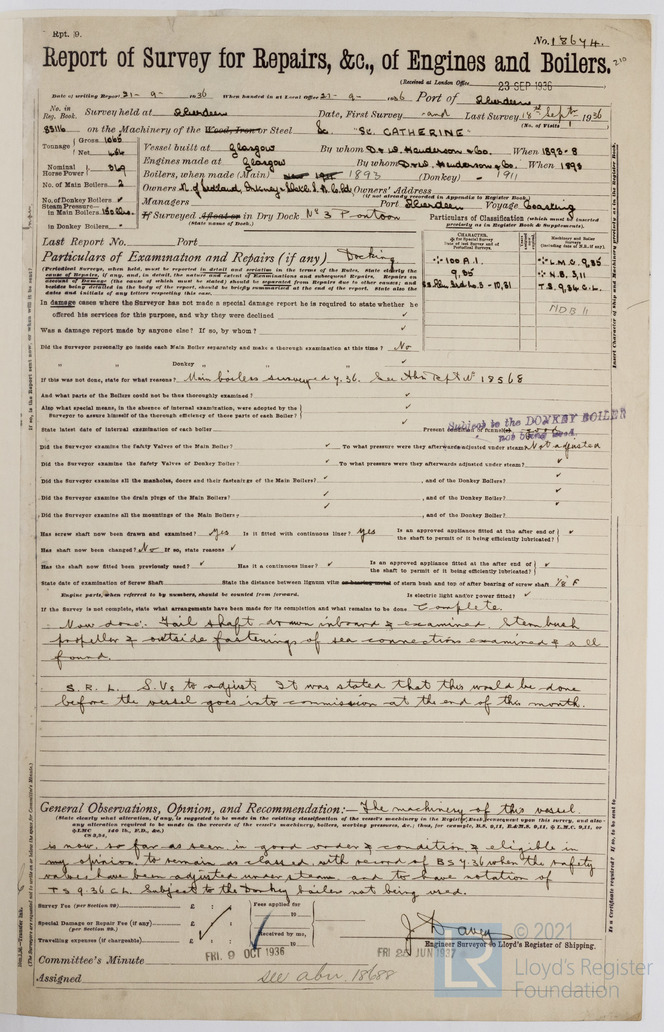 Rpt. 9.
No. 18674.
210
Report of Survey for Repairs, &c., of Engines and Boilers.
(Received at London Office 23 SEP 1936
Date of writing Report 21-9-1936 When handed in at Local Office 21-9-1936 Port of Aberdeen
No. in Reg. Book. Survey held at Aberdeen Date, First Survey and Last Survey 18th Sept 1936
(No. of Visits 1
83116 on the Machinery of the Wood, Iron or Steel Sc. "ST. CATHERINE"
Tonnage Gross 1065 Net
Vessel built at Glasgow By whom D. & W. Henderson & Co. When 1893-8
Engines made at Glasgow By whom D. & W. Henderson & Co. When 1893
Nominal Horse Power
Boilers, when made (Main) 1893 (Donkey) 1911
No. of Main Boilers 2
Owners N. of Scotland, Orkney & Shetl. S. N. Co. Ltd Owners' Address
(if not already recorded in Appendix to Register Book.)
No. of Donkey Boilers
Managers Port Aberdeen Voyage Coasting
Steam Pressure— in Main Boilers 150 lbs.
in Donkey Boilers
If Surveyed Afloat or in Dry Dock No 3 Pontoon
(State name of Dock.)
Particulars of Classification (which must be inserted precisely as in Register Book & Supplements).
Last Report No. Port
Particulars of Examination and Repairs (if any) Docking
(Periodical Surveys, when held, must be reported in detail and seriatim in terms of the Rules. State clearly the cause of Repairs, if any, and, in detail, the nature and extent of Examinations and subsequent Repairs. Repairs on account of Damage (the cause of which must be stated) should be separated from Repairs due to other causes; and besides being detailed in the body of the report, should be briefly summarized at the end of the report. State also the dates and initials of any letters respecting this case.
CHARACTER.
Machinery and Boiler Surveys
(including date of N.B., if any).
100 A.1. L.M.C. 9,35
9,35 N.B. 3,11
T.S. 9,34 C.L.
NDB 11
In damage cases where the Surveyor has not made a special damage report he is required to state whether he
offered his services for this purpose, and why they were declined
Was a damage report made by anyone else? If so, by whom?
Did the Surveyor personally go inside each Main Boiler separately and make a thorough examination at this time? No
" " Donkey " " "
If this was not done, state for what reasons? Main boilers surveyed 4.36. See Abn Rpt No 18568
And what parts of the Boilers could not be thus thoroughly examined?
Also what special means, in the absence of internal examination, were adopted by the
Surveyor to assure himself of the thorough efficiency of those parts of each boiler?
State latest date of internal examination of each boiler
Present condition of funnel
Subject to the DONKEY BOILER
not being used.
Did the Surveyor examine the Safety Valves of the Main Boiler? To what pressure were they afterwards adjusted under steam? Not adjusted
Did the Surveyor examine the Safety Valves of Donkey Boiler? To what pressure were they afterwards adjusted under steam?
Did the Surveyor examine all the manholes, doors and their fastenings of the Main Boilers? , and of the Donkey Boiler?
Did the Surveyor examine the drain plugs of the Main Boilers? , and of the Donkey Boiler?
Did the Surveyor examine all the mountings of the Main Boilers? , and of the Donkey Boiler?
Has screw shaft now been drawn and examined? Yes Is it fitted with continuous liner? Yes Is an approved appliance fitted at the after end of the shaft to permit of it being efficiently lubricated?
Has shaft now been changed? No If so, state reasons
Has the shaft now fitted been previously used? Has it a continuous liner? Is an approved appliance fitted at the after end of the shaft to permit of it being efficiently lubricated?
State date of examination of Screw Shaft State the distance between lignum vitæ or bearing metal of stern bush and top of after bearing of screw shaft 1/8" F
Engine parts, when referred to by numbers, should be counted from forward. Is electric light and/or power fitted?
If the Survey is not complete, state what arrangements have been made for its completion and what remains to be done Complete.
Now done: Tail shaft drawn inboard & examined. Stern bush
propeller & outside fastenings of sea connections examined & all
found.
S. R. L. S.Vs to adjust It was stated that this would be done
before the vessel goes into commission at the end of this month.
General Observations, Opinion, and Recommendation:— The machinery of this vessel
(State clearly what alteration, if any, is suggested to be made in the existing classification of the vessel's machinery in the Register Book consequent upon this survey, and also any alteration required to be made in the records of the vessel's machinery, boilers, working pressures, &c.; thus, for example,
is now, so far as seen, in good order & condition & eligible in
my opinion to remain as classed with record of BS 4.36 when the safety
valves have been adjusted under steam and to have notation of
TS 9.36 CL. Subject to the Donkey boiler not being used.
Survey Fee (per Section 29) £ : : Fees applied for
19
Special Damage or Repair Fee (if any) (per Section 29.) £ : :
Received by me,
Travelling expenses (if chargeable) £ : : 19
J. Davey
Engineer Surveyor to Lloyd's Register of Shipping.
Committee's Minute FRI. 9 OCT 1936 FRI 25 JUN 1937
Assigned see abn. 18688
© 2021
Lloyd's Register
Foundation
LR